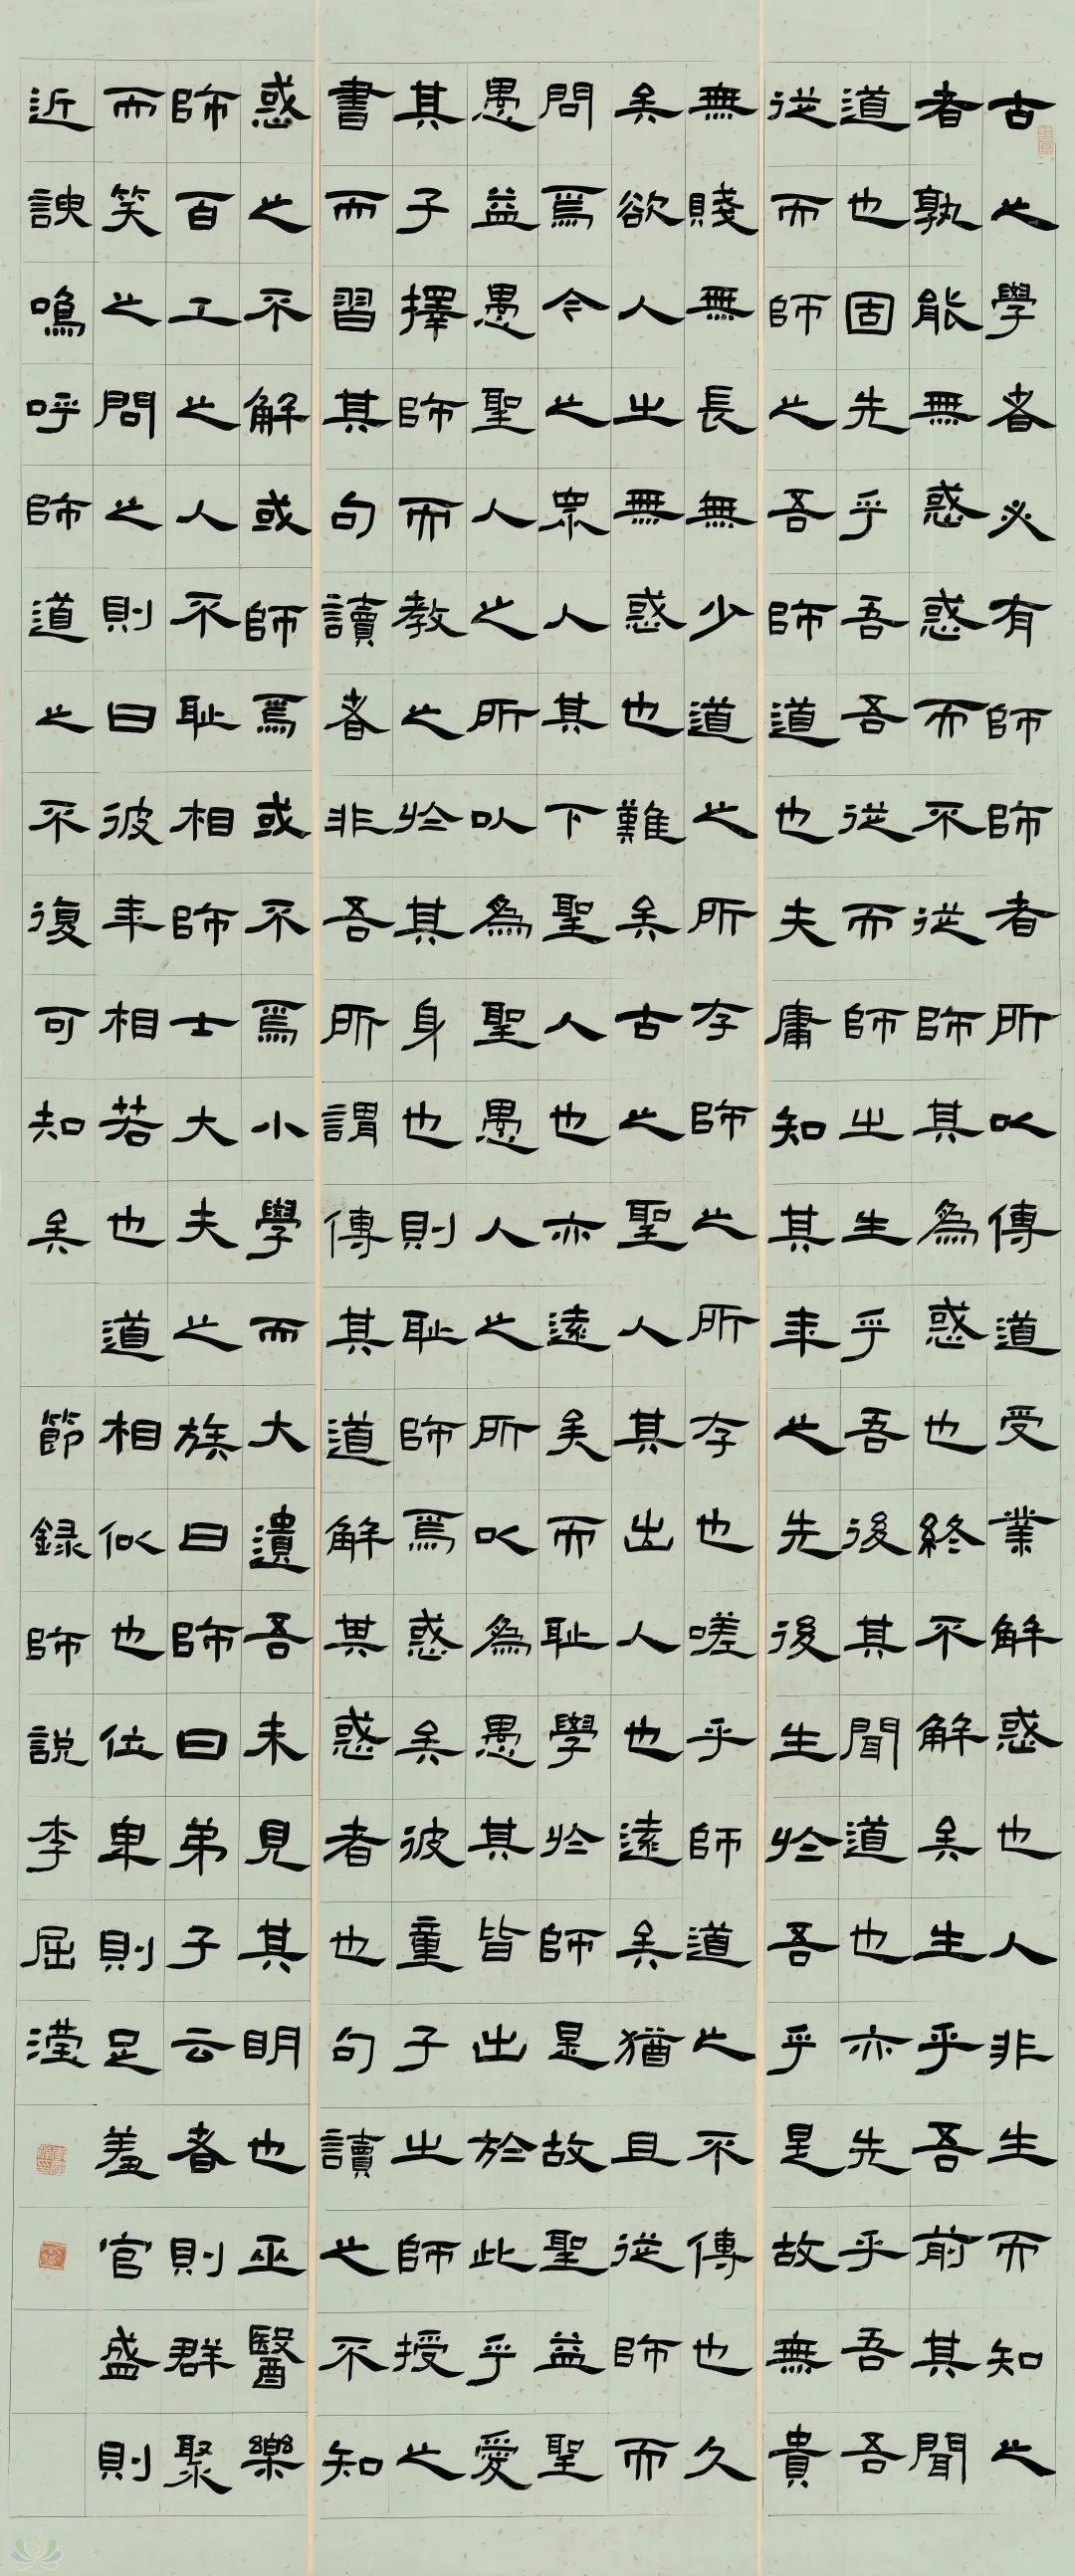 古之學者必有師師者所以傳道受業解惑也人非生而知之
者孰能無惑惑而不從師其為惑也終不解矣生乎吾前其聞
道也固先乎吾吾從而師之生乎吾後其聞道也亦先乎吾吾
從而師之吾師道也夫庸知其年之先後生於吾乎是故無貴
無賤無長無少道之所存師之所存也嗟乎師道之不傳也久
矣欲人之無惑也難矣古之聖人其出人也遠矣猶且從師而
問焉今之眾人其下聖人也亦遠矣而耻學於師是故聖益聖
愚益愚聖人之所以為聖愚人之所以為愚其皆出於此乎愛
其子擇師而教之於其身也則耻師焉惑矣彼童子之師授之
書而習其句讀者非吾所謂傳其道解其惑者也句讀之不知
惑之不解或師焉或不焉小學而大遺吾未見其明也巫醫樂
師百工之人不耻相師士大夫之族曰師曰弟子云者則群聚
而笑之問之則曰彼年相若也道相似也位卑則足羞官盛則
近諛鳴呼師道之不復可知矣 節録師説李屈滢